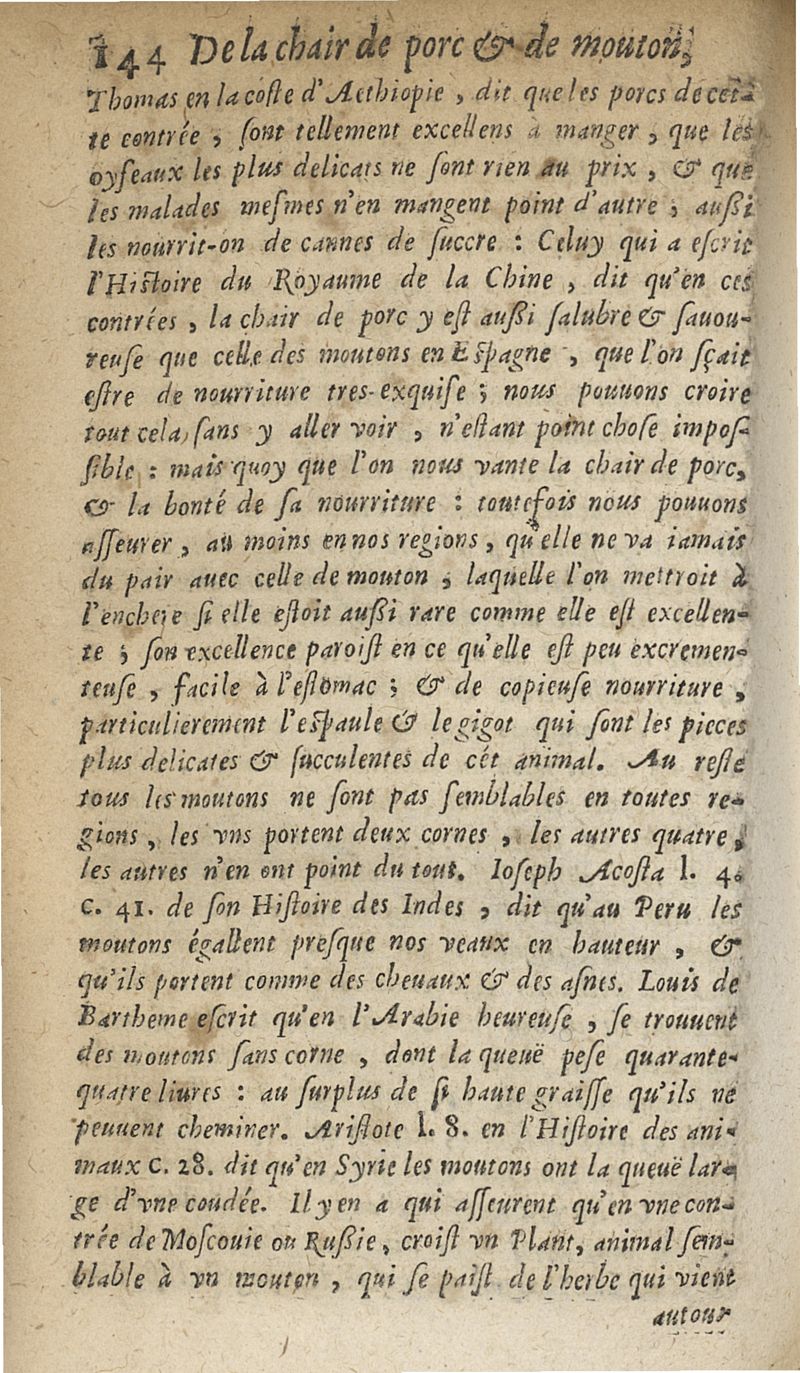 144 De la chair de porc & de mouton,
Thomas en la coſte d'Aethiopie, dit que les porcs de cet-
te contrée, ſont tellement excellens à manger, que les
oyſeaux les plus delicats ne ſont rien au prix, & que
les malades meſmes n'en mangent point d'autre; auſſi
les nourrit-on de cannes de ſuccre : Celuy qui a eſcrit
l'Hiſtoire du Royaume de la Chine, dit qu'en ces
contrées, la chair de porc y eſt auſſi ſalubre & ſauou-
reuſe que celle des moutons en Eſpagne, que l'on ſçait
eſtre de nourriture tres-exquiſe; nous pouuons croire
tout cela, ſans y aller voir, n'eſtant point choſe impoſ-
ſible : mais quoy que l'on nous vante la chair de porc,
& la bonté de ſa nourriture : toutefois nous pouuons
aſſeurer, au moins en nos regions, qu'elle ne va iamais
du pair auec celle de mouton; laquelle l'on mettroit à
l'enchere ſi elle eſtoit auſſi rare comme elle eſt excellen-
te; ſon excellence paroiſt en ce qu'elle eſt peu excremen-
teuſe, facile à l'eſtomac; & de copieuſe nourriture,
particulierement l'eſpaule & le gigot qui ſont les pieces
plus delicates & ſucculentes de cét animal. Au reſte
tous les moutons ne ſont pas ſemblables en toutes re-
gions, les vns portent deux cornes, les autres quatre,
les autres n'en ont point du tout. Ioſeph Acoſta l. 4.
c. 41. de ſon Hiſtoire des Indes, dit qu'au Peru les
moutons égallent preſque nos veaux en hauteur, &
qu'ils portent comme des cheuaux & des aſnes. Louis de
Bartheme eſcrit qu'en l'Arabie heureuſe, ſe trouuent
des moutons ſans corne, dont la queuë peſe quarante-
quatre liures : au ſurplus de ſi haute graiſſe qu'ils ne
peuuent cheminer. Ariſtote l. 8. en l'Hiſtoire des ani-
maux c. 28. dit qu'en Syrie les moutons ont la queuë lar-
ge d'vne coudée. Il y en a qui aſſeurent qu'en vne con-
trée de Moſcouie ou Ruſſie, croiſt vn Plant, animal ſem-
blable à vn mouton, qui ſe paiſt de l'herbe qui vient
autour